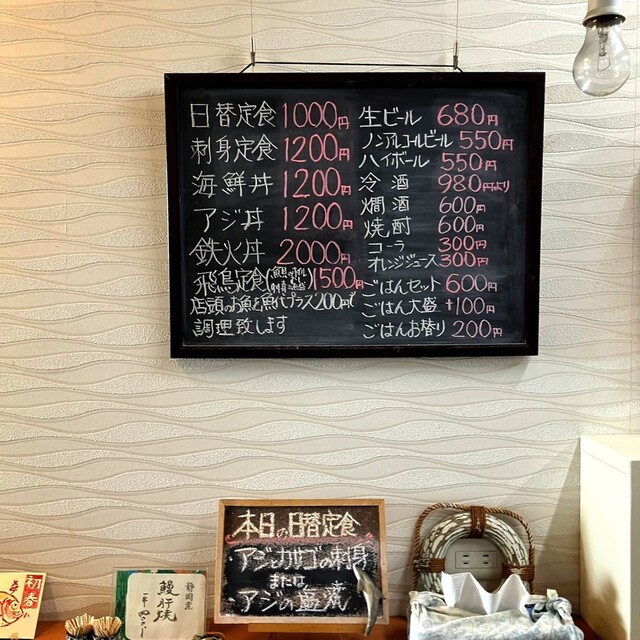 日替定食 1000円
刺身定食 1200円
海鮮丼 1200円
アジ丼 1200円
鉄火丼 2000円
飛鳥定食 1500円
店頭のお魚を魚代プラス200円で
調理致します
生ビール 680円
ノンアルコールビール 550円
ハイボール 550円
冷酒 980円より
燗酒 600円
焼酎 600円
コーラ 300円
オレンジジュース 300円
ごはんセット 600円
ごはん大盛 +100円
ごはんお替り 200円
本日の日替定食
アジとカサゴの刺身
または
アジの塩焼
初春
静岡産
鰻肝焼